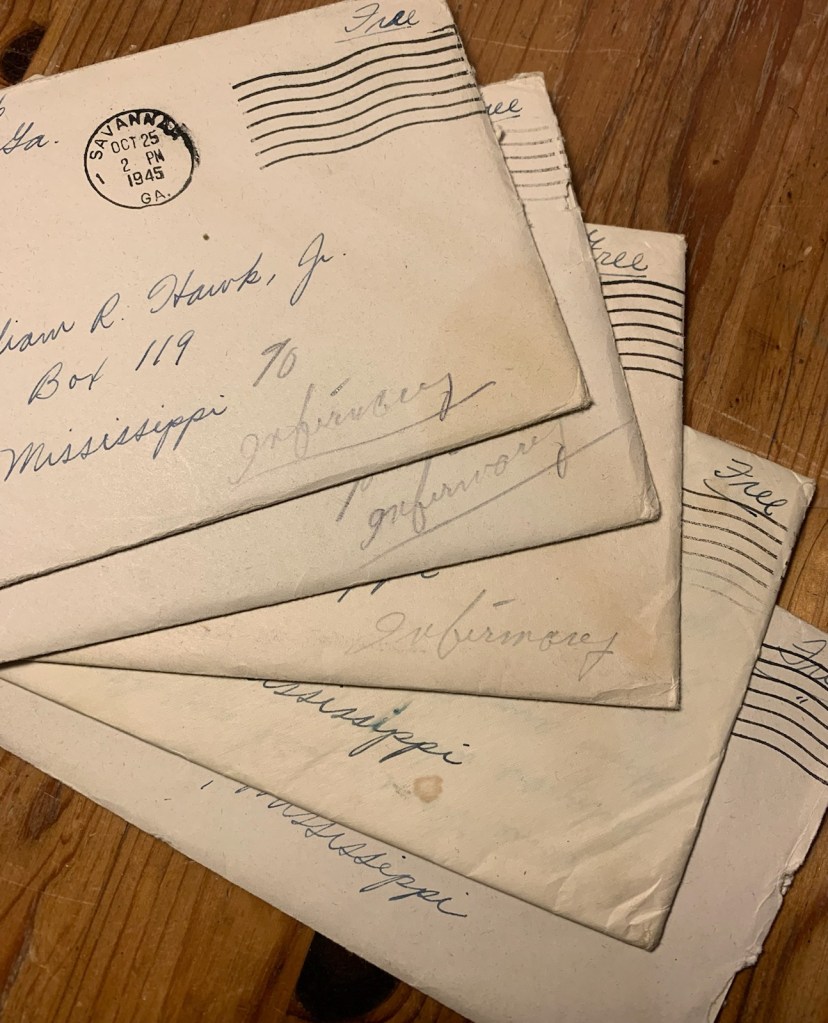 Free
Ga.
SAVANNAH
OCT 25
2 PM
1945
1
GA.
liam R. Hawk, Jr.
Box 119
Mississippi
%
Infirmary
ree
Infirmary
Free
Infirmary
Free
ississippi
Mississippi